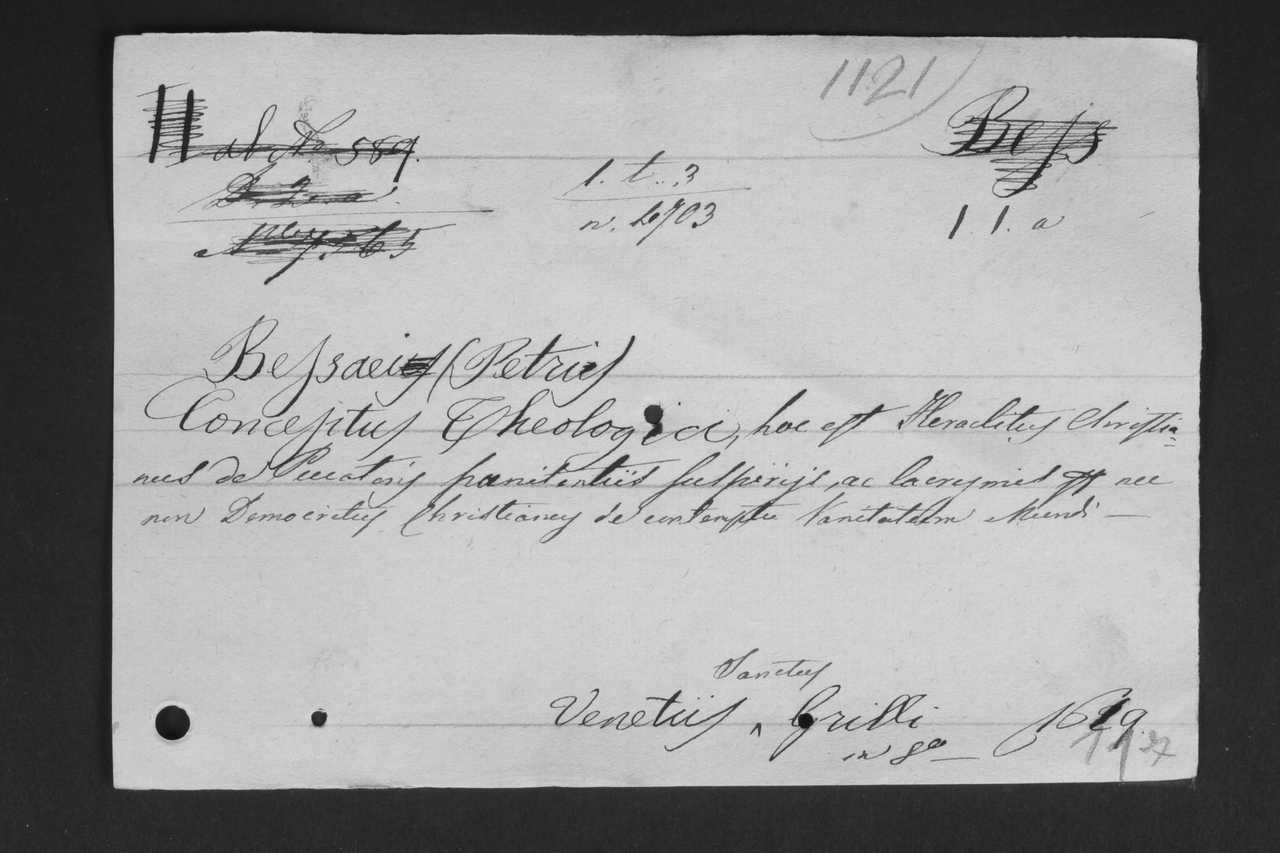 1121
ab No 589.
Bess
1. t. 3
n. 6703
1. 1. a
Bessaeus (Petrus)
Conceptus Theologici, hoc est Heraclitus Christia=
nus de Peccatoris pænitentiis suspirijs, ac lacrymis nec
non Democritus Christianus de contemptu Vanitatum Mundi —
Sanctus
Venetiis ^ Grilli 1619
in 8o —